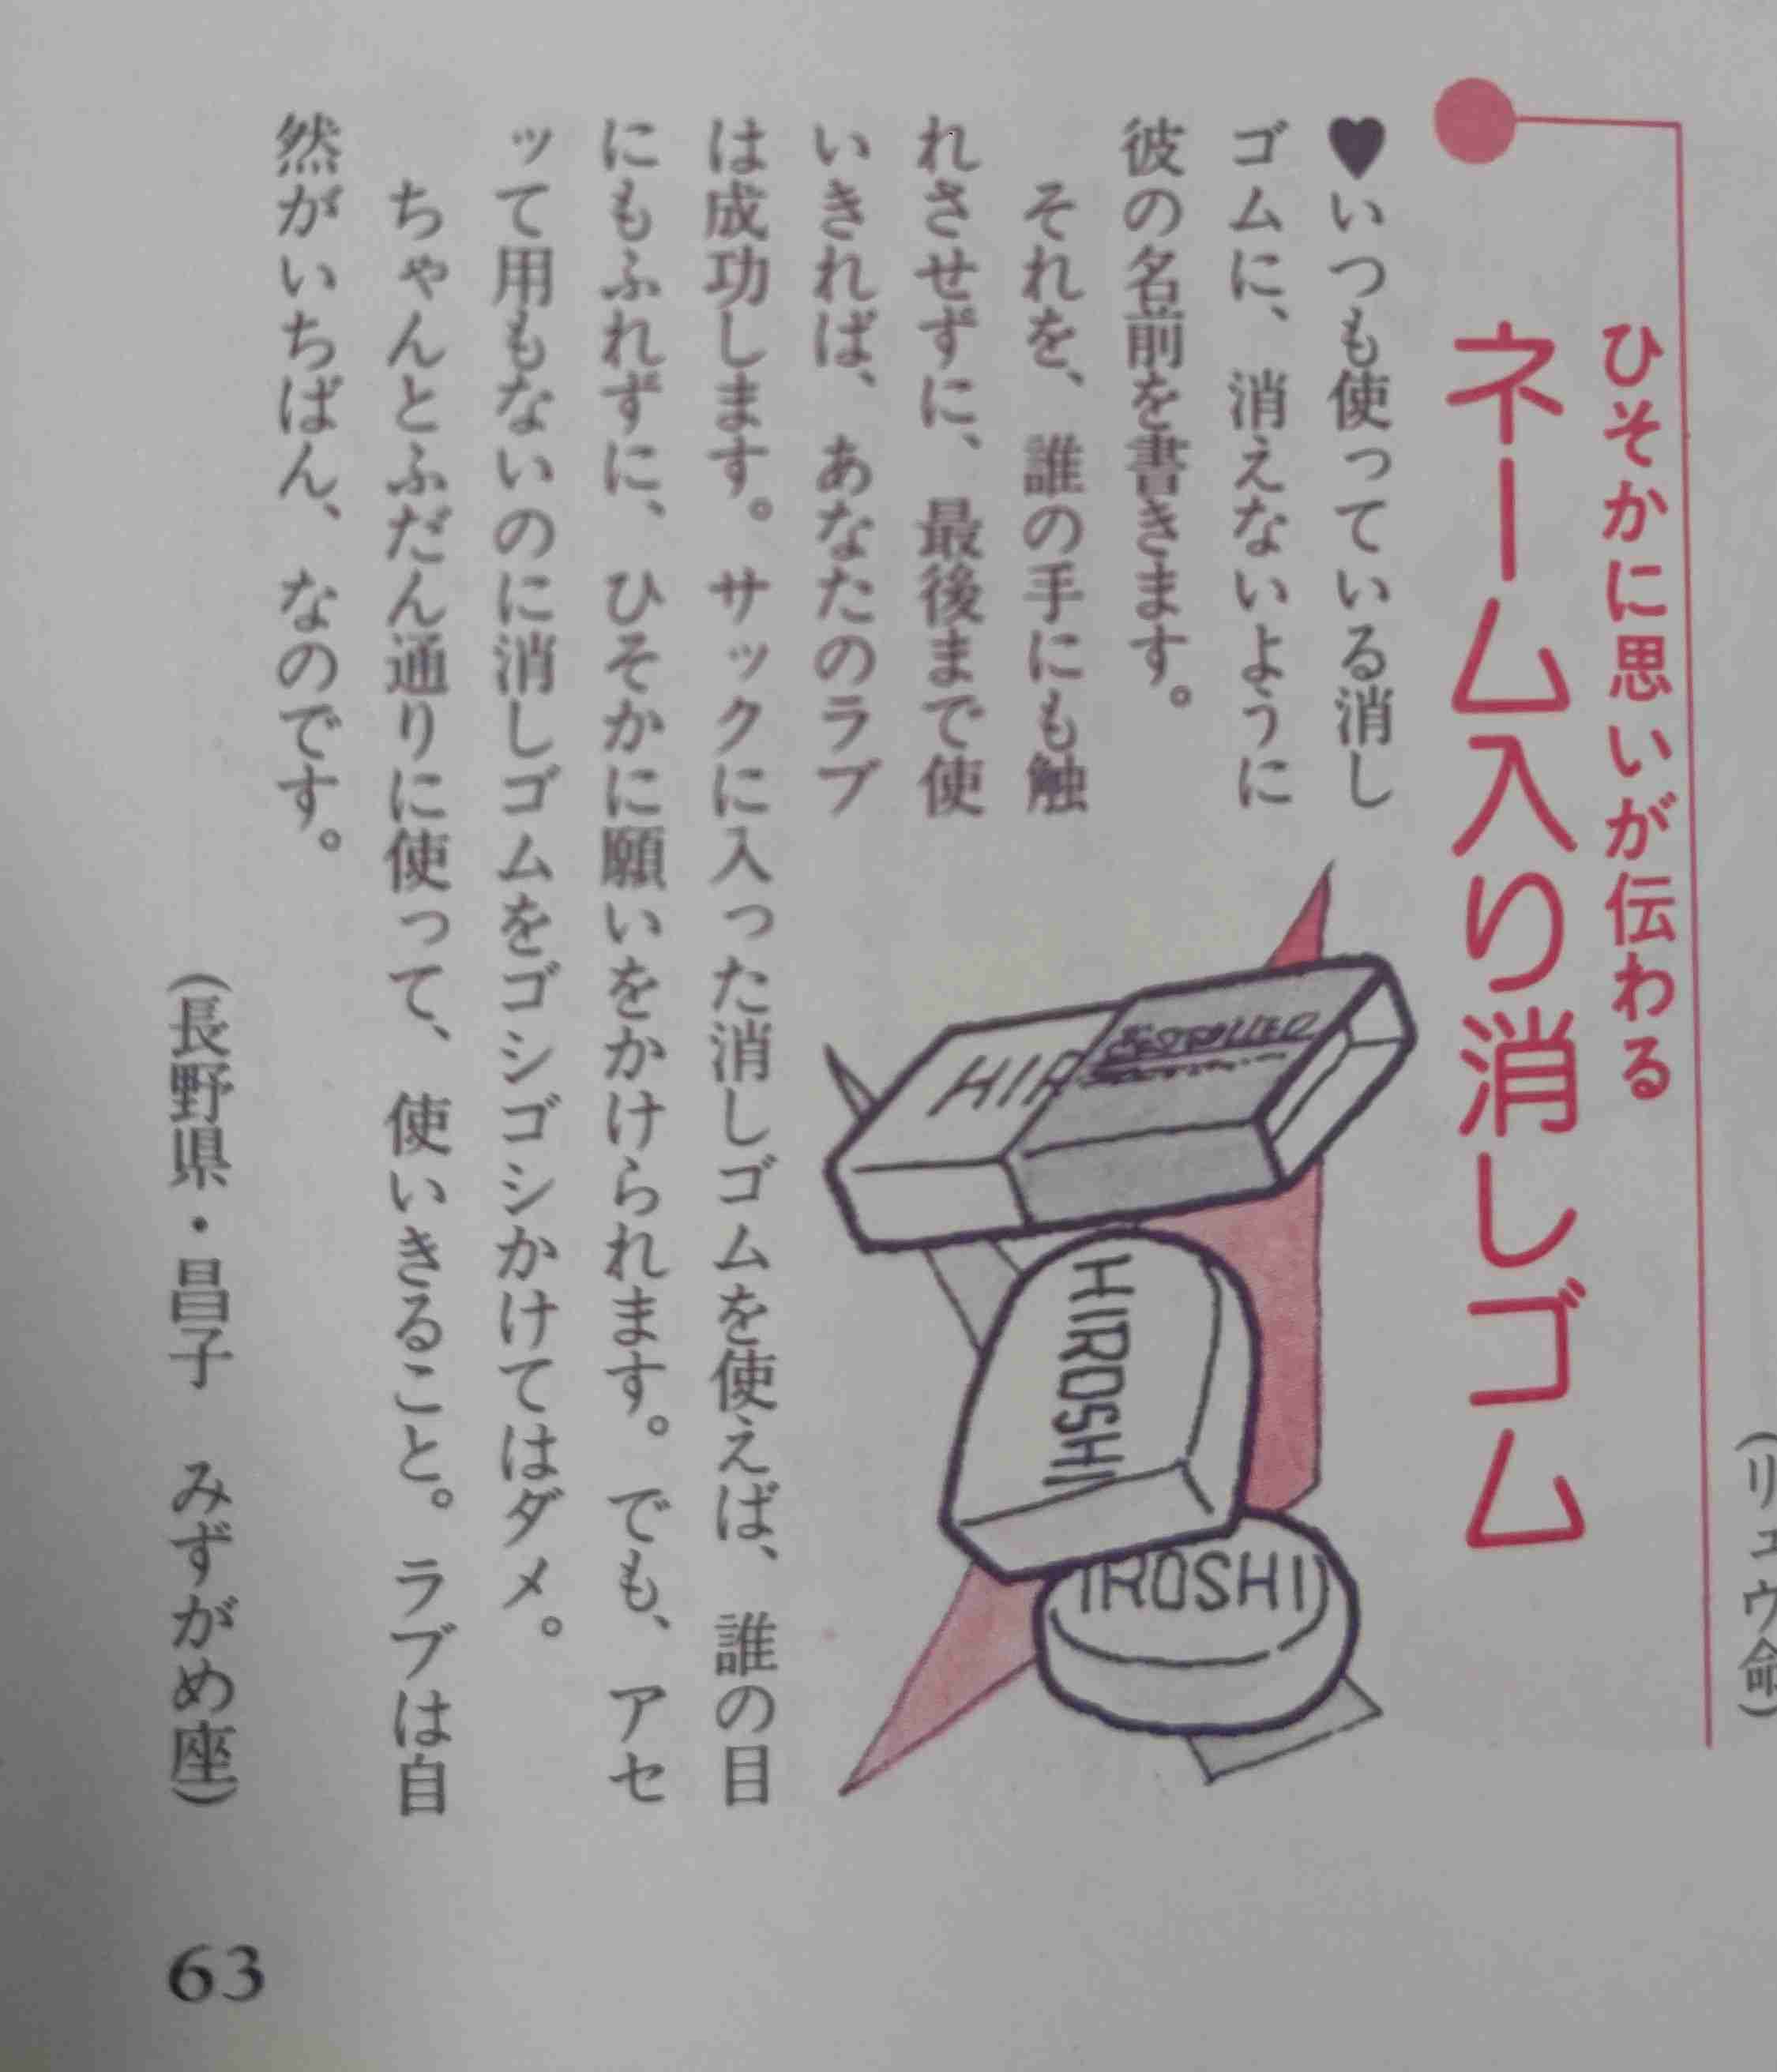 ひそかに思いが伝わる
ネーム入り消しゴム
♥いつも使っている消し
ゴムに、消えないように
彼の名前を書きます。
それを、誰の手にも触
れさせずに、最後まで使
いきれば、あなたのラブ
は成功します。サックに入った消しゴムを使えば、誰の目
にもふれずに、ひそかに願いをかけられます。でも、アセ
ッて用もないのに消しゴムをゴシゴシかけてはダメ。
ちゃんとふだん通りに使って、使いきること。ラブは自
然がいちばん、なのです。
(長野県・昌子　みずがめ座)
HIR
HIROSHI
IROSHI
(リュウ命)
63